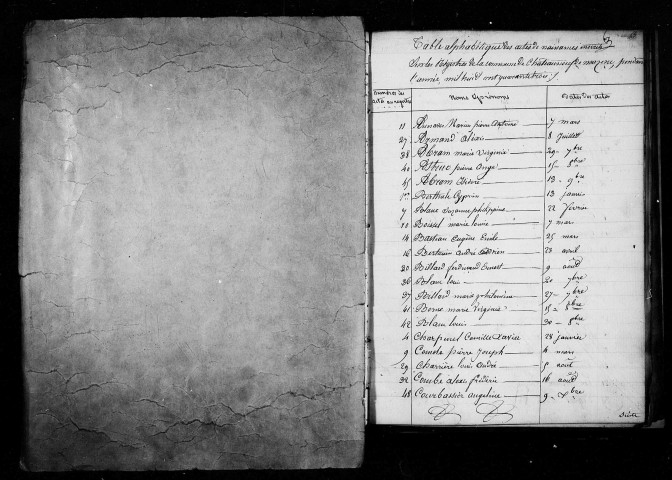 Table alphabétique des actes de naissances inscrits
Sur les Registres de la commune de Châteauneuf de mazenc, pendant
l'année mil huit cent quarante trois
Numéros des actes au registre Noms & prénoms Dates des actes
11 Marius pierre Antoine 7 mars
27 Armand Alexis 8 Juillet
38 Abram marie Virginie 29 7bre
40 pierre Ange 15 8bre
45 Abram Isidore 13 9bre
1er Barthele Cyprien 13 janvier
7 Blanc Suzanne philippine 22 février
10 Boisset marie louise 7 mars
14 Bastian Eugène Emile 25 mars
16 Bertrand André Adrien 23 avril
30 Billard ferdinand Ernest 9 août
36 Blanc louis 20 7bre
37 Billard marie philomène 27 7bre
41 Berne marie Virginie 15 8bre
42 Blanc louis 30 8bre
4 Camille Xavier 28 janvier
9 Comete pierre Joseph 4 mars
29 Charrière louis André 5 août
32 Combe alexis frédéric 16 août
48 Courbassier Angeline 9 Xbre
Suite